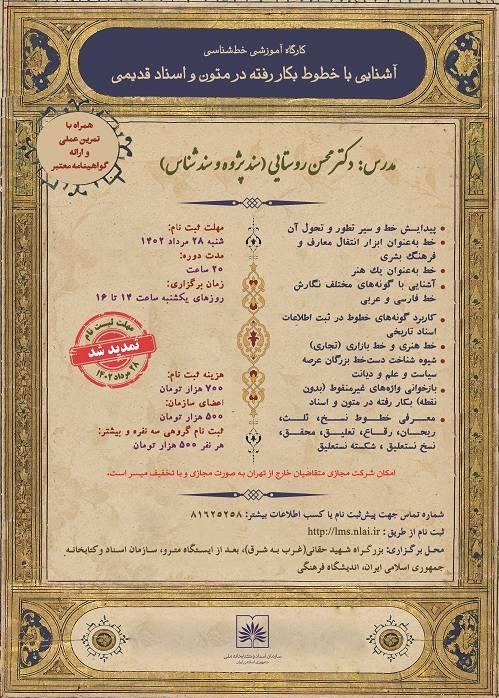 کارگاه آموزشی خط‌شناسی
آشنایی با خطوط بکار رفته در متون و اسناد قدیمی
همراه با
تمرین عملی
و ارائه
گواهینامه معتبر
مدرس: دکتر محسن روستایی (سند پژوه و سند شناس)
پیدایـش خط و سیر تطور و تحول آن
خط به‌عنوان ابزار انتقال معارف و
فرهنگ بشری
خط به‌عنوان یك هنر
آشنایی با گونه‌های مختلف نگارش
خط فارسی و عربی
کاربرد گونه‌های خطوط در ثبت اطلاعات
اسناد تاریخی
خط هنری و خط بازاری (تجاری)
شیوه شناخت دست‌خط بزرگان عرصه
سیاست و علم و دیانت
بازخوانی واژه‌های غیرمنقوط (بدون
نقطه) بکار رفته در متون و اسناد
معـرفی خطـوط نسـخ، ثلـث،
ریحـان، رقـاع، تعلیـق، محقـق،
نسخ تعلیق ، شکسته نستعلیق
مهلت ثبت نام:
شنبه ۲۸ مرداد ۱۴۰۲
مدت دوره:
۲۰ ساعت
زمان برگزاری:
روزهای یکشنبه ساعت ۱۴ تا ۱۶
مهلت لیست نام
تمدید شد
۲۸ مرداد ۱۴۰۲
هزینه ثبت نام:
۷۰۰ هزار تومان
اعضای سازمان:
۵۰۰ هزار تومان
ثبت نام گروهی سه نفره و بیشتر:
هر نفر ۵۰۰ هزار تومان
امکان شرکت مجازی متقاضیان خارج از تهران به صورت مجازی و با تخفیف میسر است.
شماره تماس جهت پیش‌ثبت نام یا کسب اطلاعات بیشتر: ۸۱۶۲۵۲۵۸
ثبت نام از طریق : http://lms.nlai.ir
محـل برگزاری: بزرگـراه شـهید حقانی(غرب بـه شـرق)، بعد از ایسـتگاه متـرو، سازمان اسـناد و کتابخانـه
جمهوری اسلامی ایران، اندیشگاه فرهنگی
سازمان اسناد و کتابخانه ملی
جمهوری اسلامی ایران